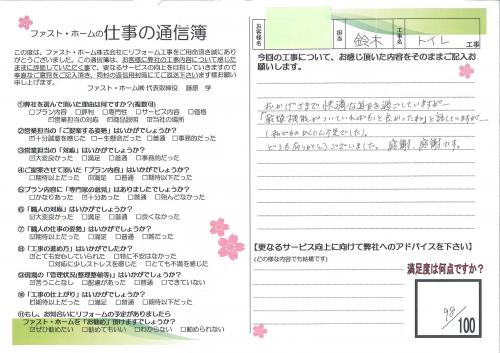 ファスト・ホームの仕事の通信簿
この度は、ファスト・ホーム株式会社にリフォーム工事をご用命頂き誠にあり
がとうございました。この通信簿は、お客様に工事の内容について感じた
ままに評価していただく事で、更なるサービスの向上を目指していますので
率直なご意見をご記入頂き、同封の返信用封筒にてご返送下さいます様お願い
申し上げます。
ファスト・ホーム㈱ 代表取締役 藤原 学
①弊社を選んで頂いた理由は何ですか?(複数可)
□プラン内容 □評判 □専門性 □サービス内容 □価格
□営業担当の対応 ☑商品説明 ☑当社の場所
②営業担当の「ご提案する姿勢」はいかがでしょうか?
☑十分誠意を感じた □一生懸命だった □普通 □事務的だった
③営業担当の「対応」はいかがでしょうか?
☑大変良かった □満足 □普通 □事務的だった
④ご提案させて頂いた「プラン内容」はいかがでしょうか?
□期待以上だった ☑満足 □普通 □期待以下だった
⑤プラン内容に「専門家の意見」はありましたでしょうか?
□かなりあった ☑十分あった □普通 □殆んどなかった
⑥「職人の対応」はいかがでしょうか?
☑大変良かった □満足 □普通 □良くなかった
⑦「職人の仕事の姿勢」はいかがでしょうか?
☑期待以上だった □満足 □普通 □期待以下だった
⑧「工事の進め方」はいかがでしたか?
☑とても安心していられた □特に不安はなかった
□対応に少しストレスを感じた □とても不満を感じた
⑨現場の「管理状況(整理整頓等)」はいかがでしょうか?
☑言うことなし □配慮があった □普通 □できていない
⑩「工事の仕上がり」はいかがでしょうか?
☑期待以上だった □満足 □普通 □期待以下だった
⑪もし、お知合いにリフォームの予定がありましたら
ファスト・ホームを「お勧め」頂けますでしょうか?
☑ぜひ勧めたい □勧めてもいい □わからない □勧められない
お客様名
担当
鈴木
工事名
トイレ
工事
今回の工事について、お感じ頂いた内容をそのままご記入お
願いします。
おかげさまで快適な毎日を過ごしていますが
どうもありがとうございました。感謝、感謝です。
【更なるサービス向上に向けて弊社へのアドバイスを下さい】
(どの様な内容でも結構です)
満足度は何点ですか?
98/100